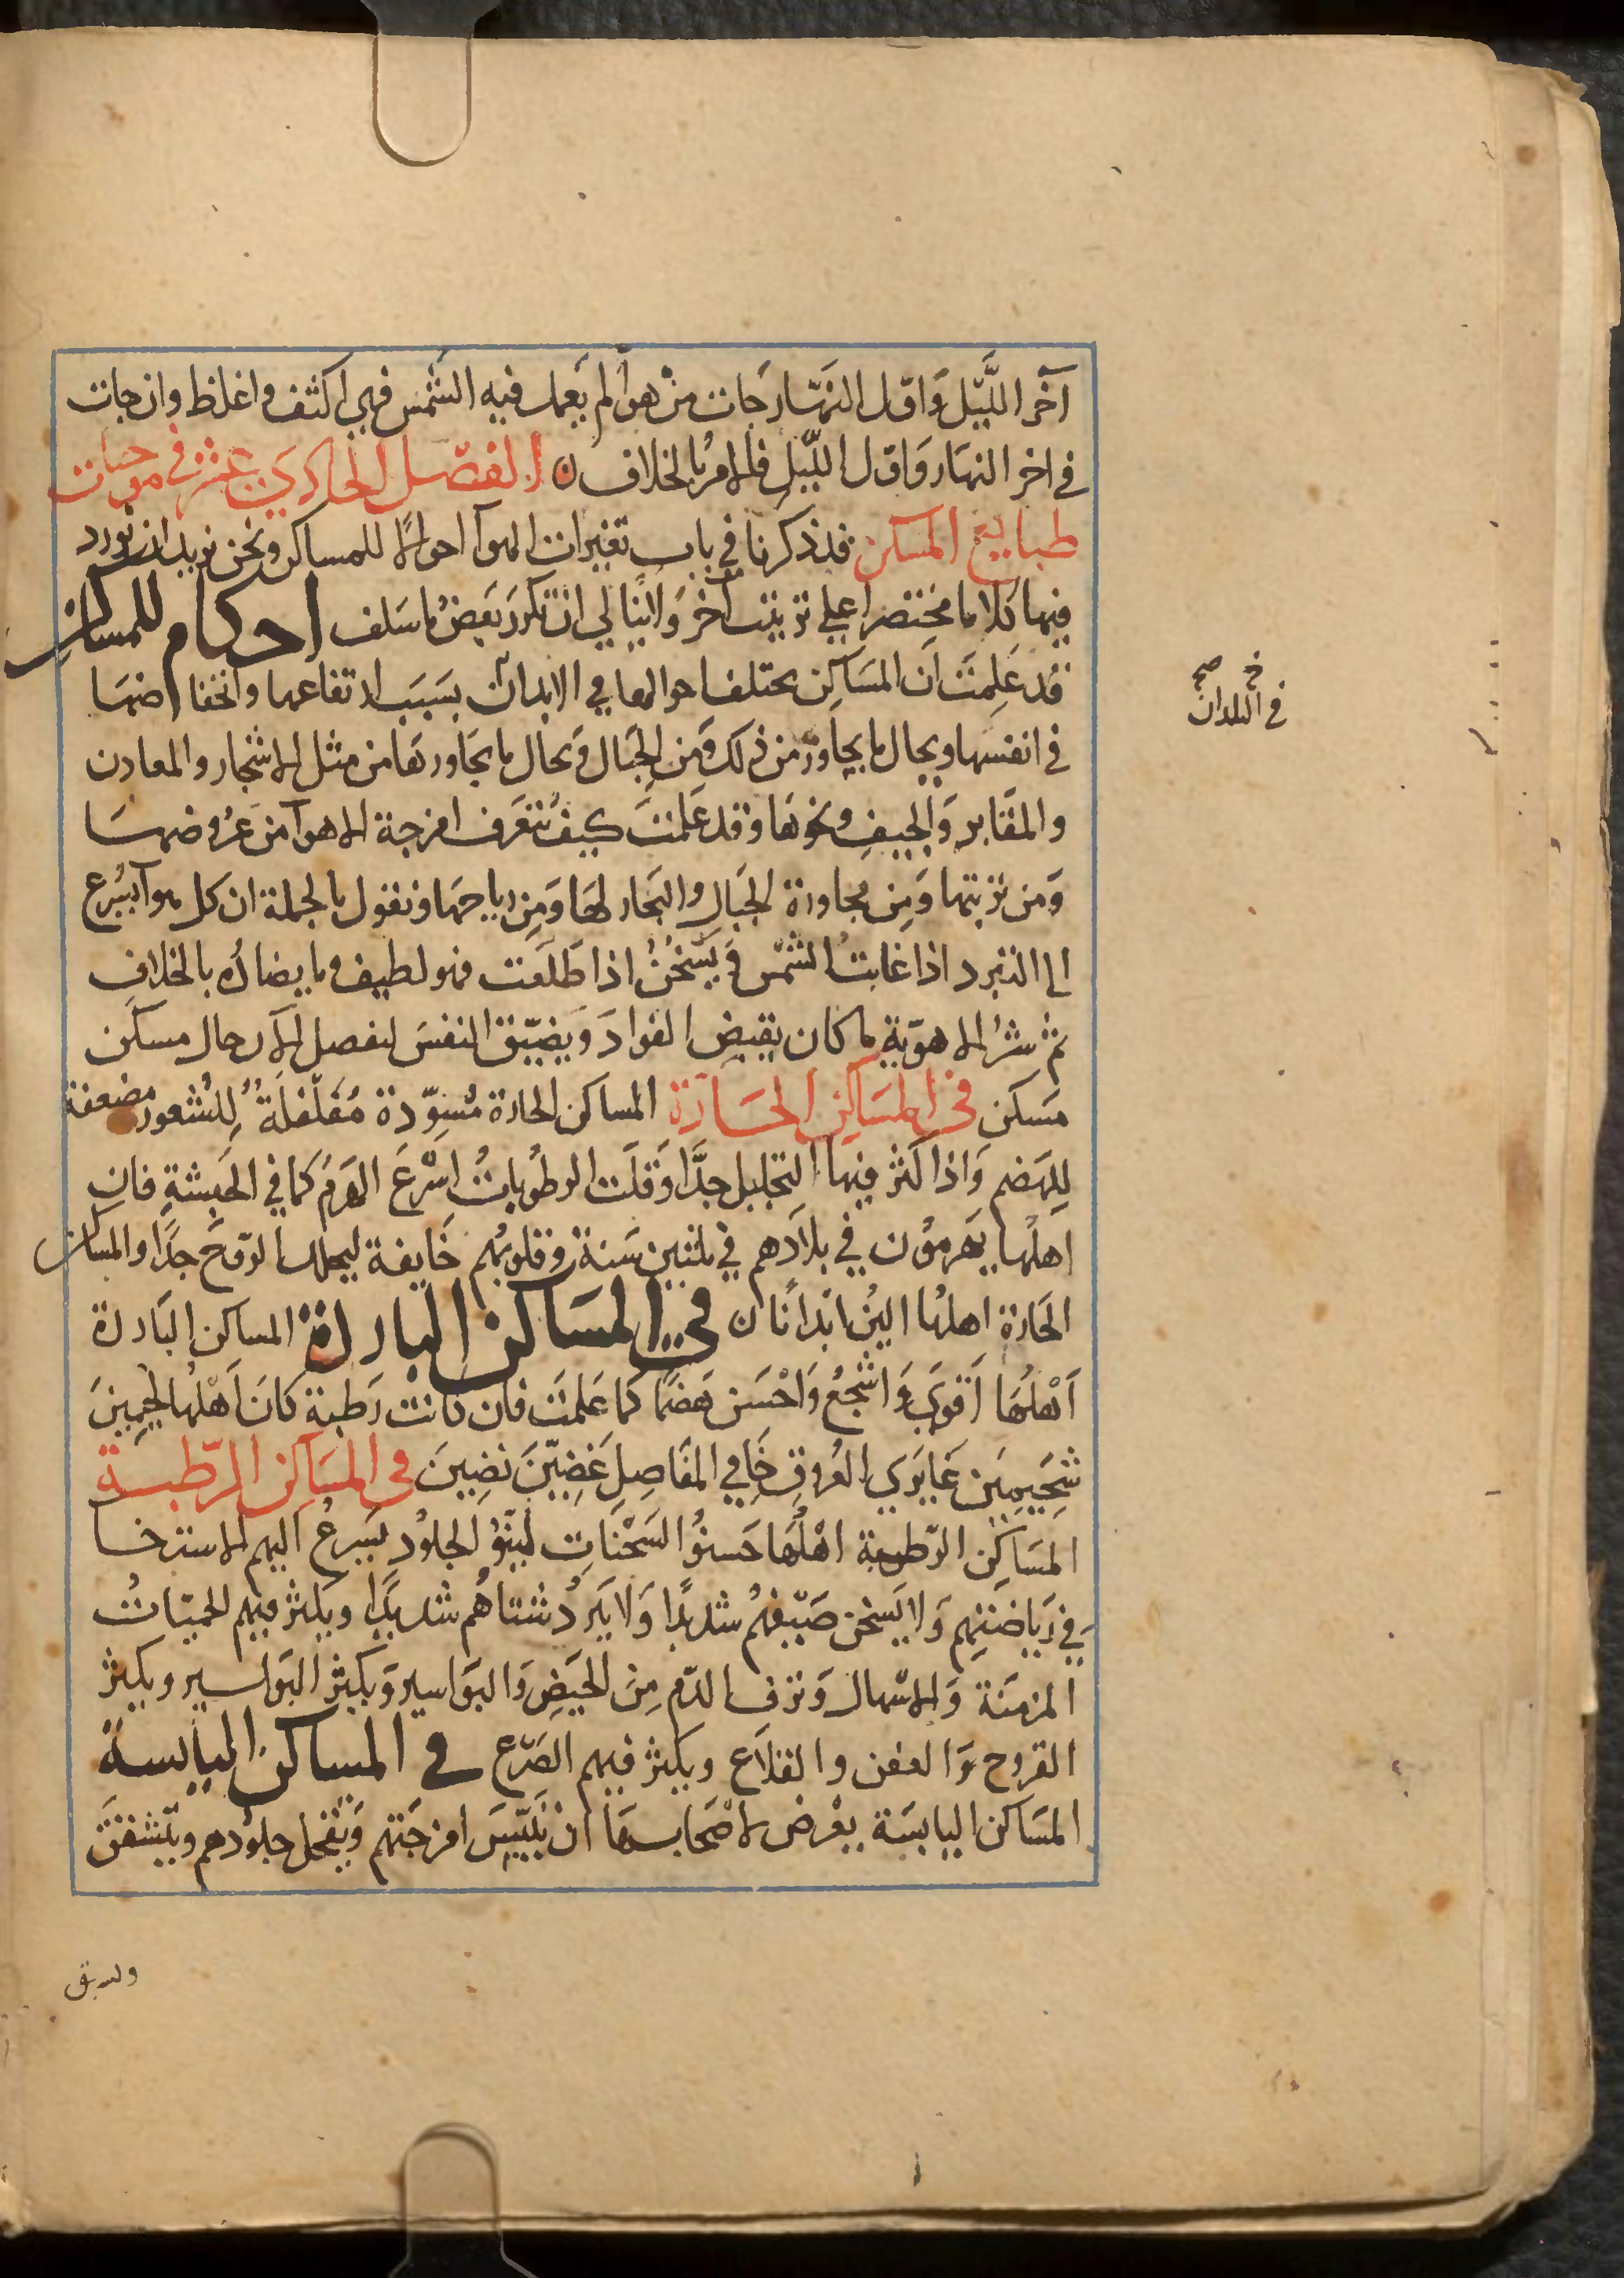 آخر الليل واول النهار جات من هوآ لم يعمل فيه الشمس فهي اكثف واغلظ وان جات
في اخر النهار واول الليل فالامر بالخلاف ن الفصل الحادي عشر في موجبات
طبايع المسكن قد ذكرنا في باب تغيرات الهوآ احوالا للمساكن ونحن نريد ان نورد
فيها كلاما مختصرا على ترتيب آخر ولا نبالي ان نكرر بعض ما سلف احكام للمساكن
قد علمت ان المساكن يختلف احوالها في الابدان بسبب ارتفاعها وانخفاضها
في انفسها وبحال ما يجاور من ذلك ومن الجبال وبحال ما يجاورها من مثل الاشجار والمعادن
والمقابر والجيف ونحوها وقد علمت كيف تتعرف امزجة الاهوآ من عروضها
ومن تربتها ومن مجاورة الجبال والبحار لها ومن رياحها ونقول بالجملة ان كل هوآ يسرع
الى التبرد اذا غابت الشمس ويسخن اذا طلعت فهو لطيف وما يضاده بالخلاف
ثم شر الاهوية ما كان يقبض الفواد ويضيق النفس لنفصل الآن حال مسكن
مسكن في المساكن الحارة المساكن الحارة مسودة مفلفلة للشعور مضعفة
للهضم واذا كثر فيها التحليل جدا وقلت الرطوبات اسرع الهرم كما في الحبشة فان
اهلها يهرمون في بلادهم في ثلثين سنة وقلوبهم خايفة لتحلل الروح جدا والمساكن
الحارة اهلها الين ابدانا ن في المساكن الباردة المساكن الباردة
اهلها اقوى واشجع واحسن هضما كما علمت فان كانت رطبة كان اهلها لحيمين
شحيمين غايري العروق خافي المفاصل غضين بضين في المساكن الرطبة
المساكن الرطبة اهلها حسنو السحنات لينو الجلود يسرع اليهم الاسترخا
في رياضتهم ولا يسخن صيفهم شديدا ولا يبرد شتاهم شديدا ويكثر فيهم الحميات
المزمنة والاسهال ونزف الدم من الحيض والبواسير ويكثر البواسير ويكثر
القروح والعفن والقلاع ويكثر فيهم الصرع في المساكن اليابسة
المساكن اليابسة يعرض لاصحابها ان تيبس امزجتهم وتقحل جلودهم ويتشقق
في البلدان خ صح